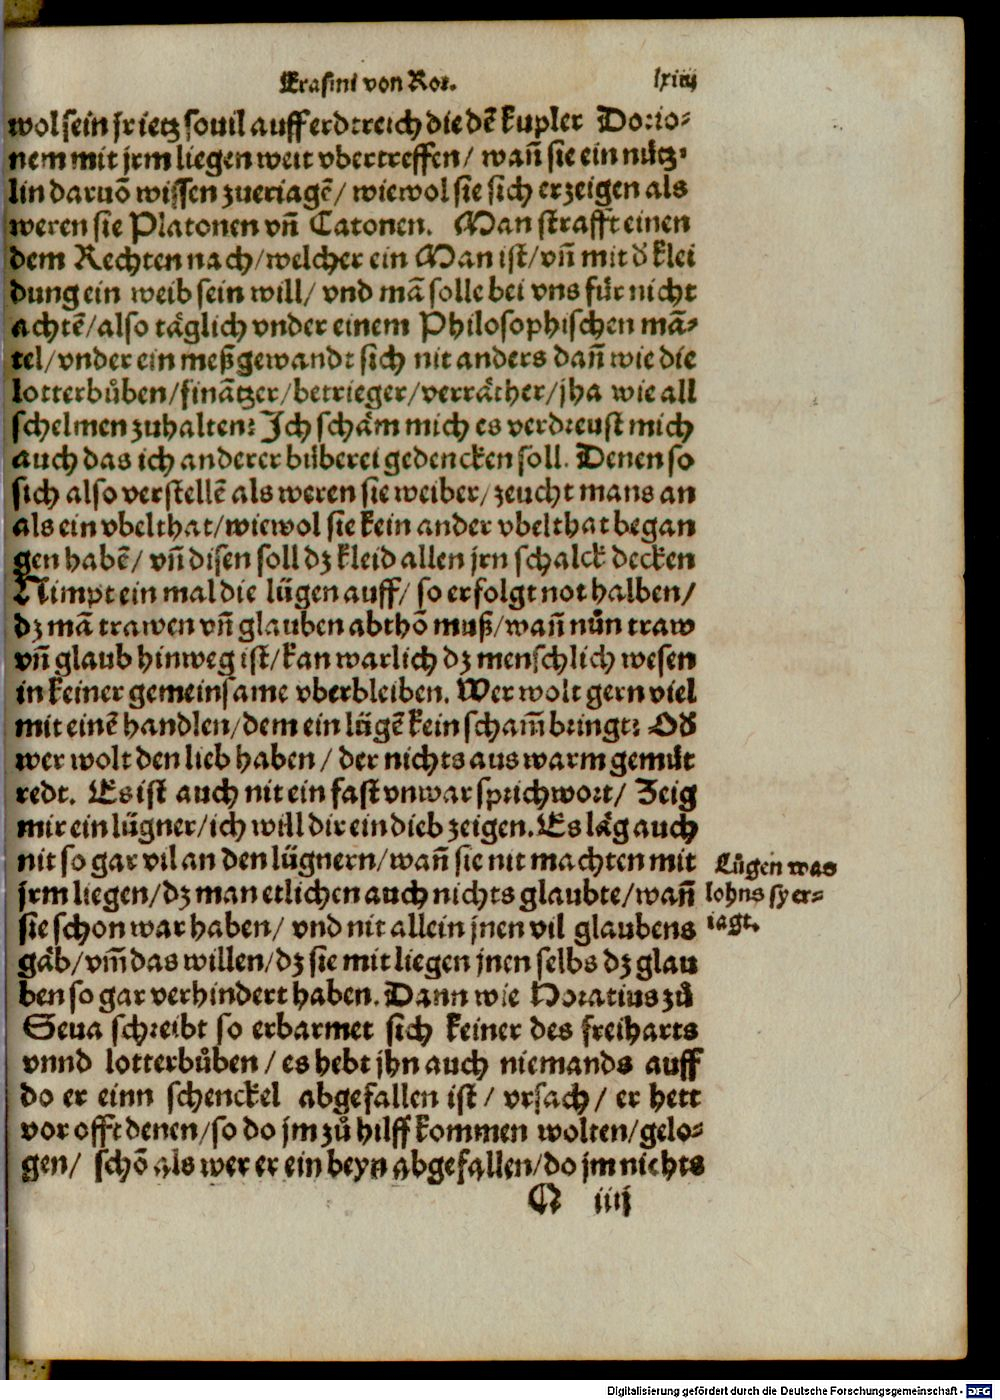 Erasmi von Rot. lxiiij
wol sein jr ietz souil auff erdtreich die dẽ kupler Dorio-
nem mit jrm liegen weit vbertreffen / wañ sie ein nütz-
lin daruõ wissen zueriagẽ / wiewol sie sich erzeigen als
weren sie Platonen vñ Catonen. Man strafft einen
dem Rechten nach / welcher ein Man ist / vñ mit d̃ klei
dung ein weib sein will / vnd mã solle bei vns für nicht
achtẽ / also täglich vnder einem Philosophischen mã-
tel / vnder ein meßgewandt sich nit anders dañ wie die
lotterbůben / finãtzer / betrieger / verräther / jha wie all
schelmen zuhalten? Ich schäm mich es verdreust mich
auch das ich anderer büberei gedencken soll. Denen so
sich also verstellẽ als weren sie weiber / zeucht mans an
als ein vbelthat / wiewol sie kein ander vbelthat began
gen habẽ / vñ disen soll dz kleid allen jrn schalck decken
Nimpt ein mal die lügen auff / so erfolgt not halben /
dz mã trawen vñ glauben abthõ muß / wañ nůn traw
vñ glaub hinweg ist / kan warlich dz menschlich wesen
in keiner gemeinsame vberbleiben. Wer wolt gern viel
mit einẽ handlen / dem ein lügẽ kein scham̃ bringt? Od̃
wer wolt den lieb haben / der nichts aus warm gemüt
redt. Es ist auch nit ein fast vnwar sprichwort / Zeig
mir ein lügner / ich will dir ein dieb zeigen. Es läg auch
nit so gar vil an den lügnern / wañ sie nit machten mit
jrm liegen / dz man etlichen auch nichts glaubte / wañ
sie schon war haben / vnd nit allein jnen vil glaubens
gäb / vm̃ das willen / dz sie mit liegen jnen selbs dz glau
ben so gar verhindert haben. Dann wie Horatius zů
Seua schreibt so erbarmet sich keiner des freiharts
vnnd lotterbůben / es hebt jhn auch niemands auff
do er einn schenckel abgefallen ist / vrsach / er hett
vor offt denen / so do jm zů hilff kommen wolten / gelo-
gen / schõ als wer er ein beyn abgefallen / do jm nichts
M iiij
Lügen was
lohns sy er-
iagt.
Digitalisierung gefördert durch die Deutsche Forschungsgemeinschaft - DFG